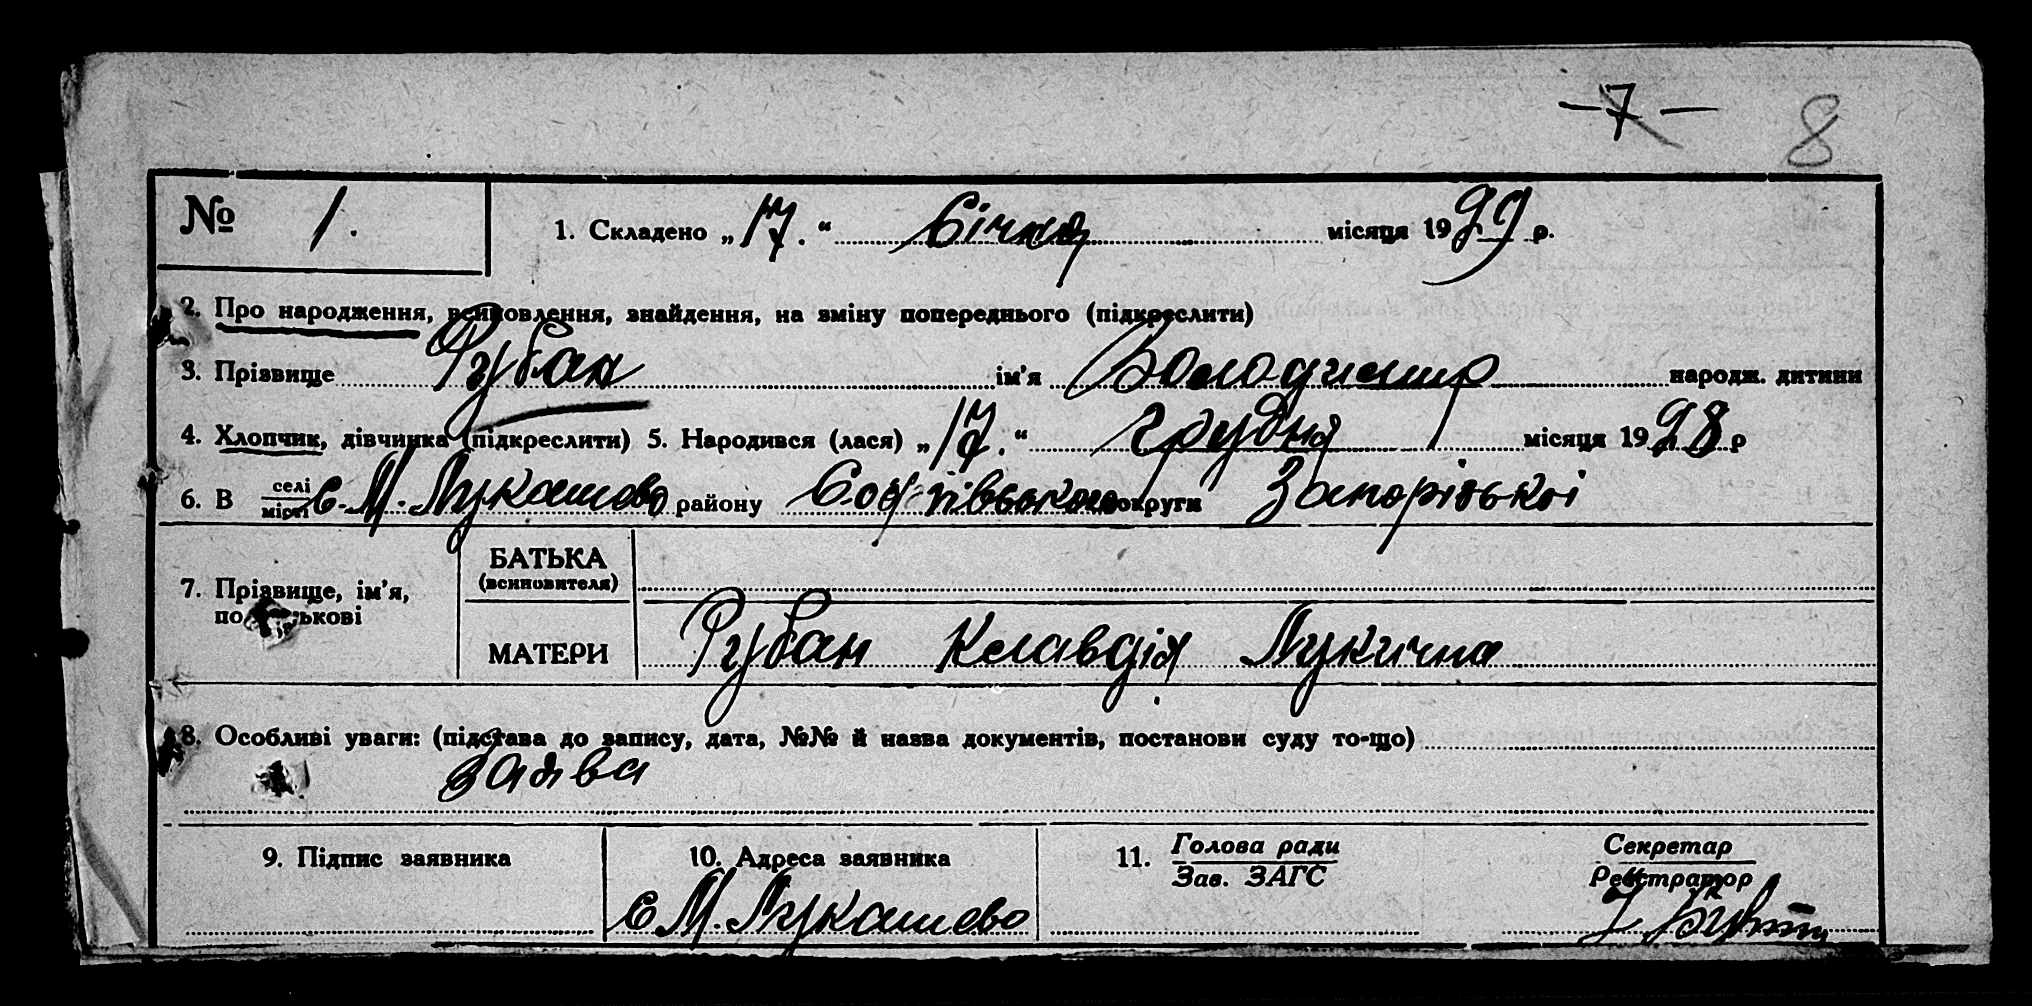 — 7 — 8
№ 1. 1. Складено „17.“ Січня місяця 1929 р.
2. Про народження, всиновлення, знайдення, на зміну попереднього (підкреслити)
3. Прізвище Рубан ім'я Володимир народж. дитини
4. Хлопчик, дівчинка (підкреслити) 5. Народився (лася) „17.“ грудня місяця 1928 р
6. В селі місті с. М. Лукашево району Софіївського округи Запорізької
7. Прізвище, ім'я, по батькові
БАТЬКА
(всиновителя)
МАТЕРИ Рубан Клавдія Лукична
8. Особливі уваги: (підстава до запису, дата, №№ й назва документів, постанови суду то-що)
заява
9. Підпис заявника 10. Адреса заявника 11. Голова ради Секретар
Зав. ЗАГС Реєстратор
с М. Лукашево